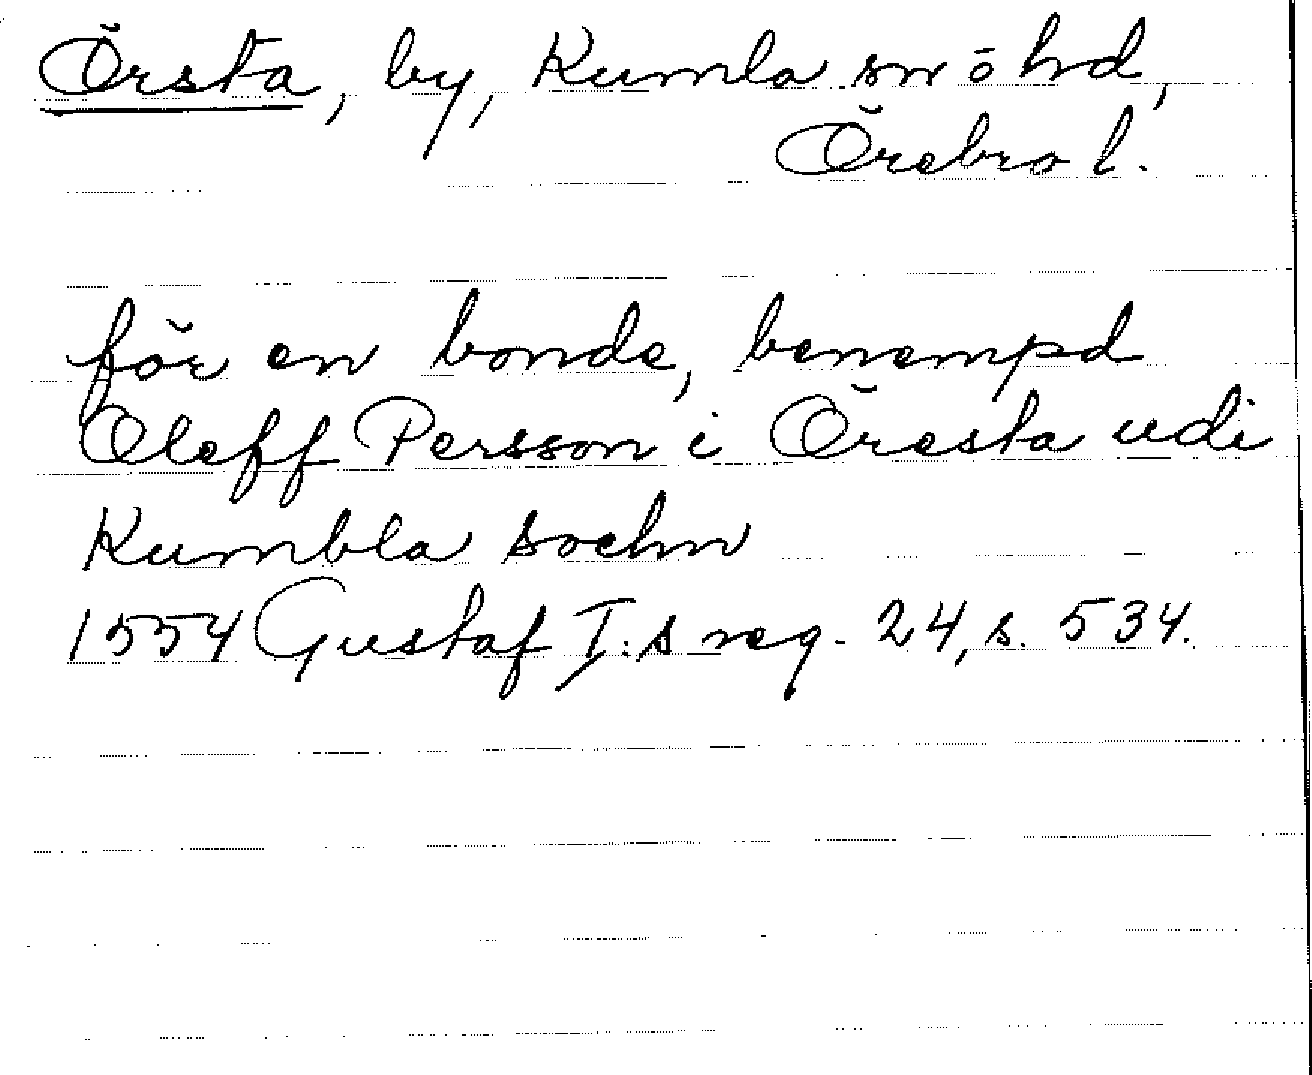 Örsta, by, Kumla sn ö hd,
Örebro l.
för en bonde, benempd
Oleff Persson i Öresta udi
Kumbla sochn
1554 Gustaf I:s reg. 24, s. 534.